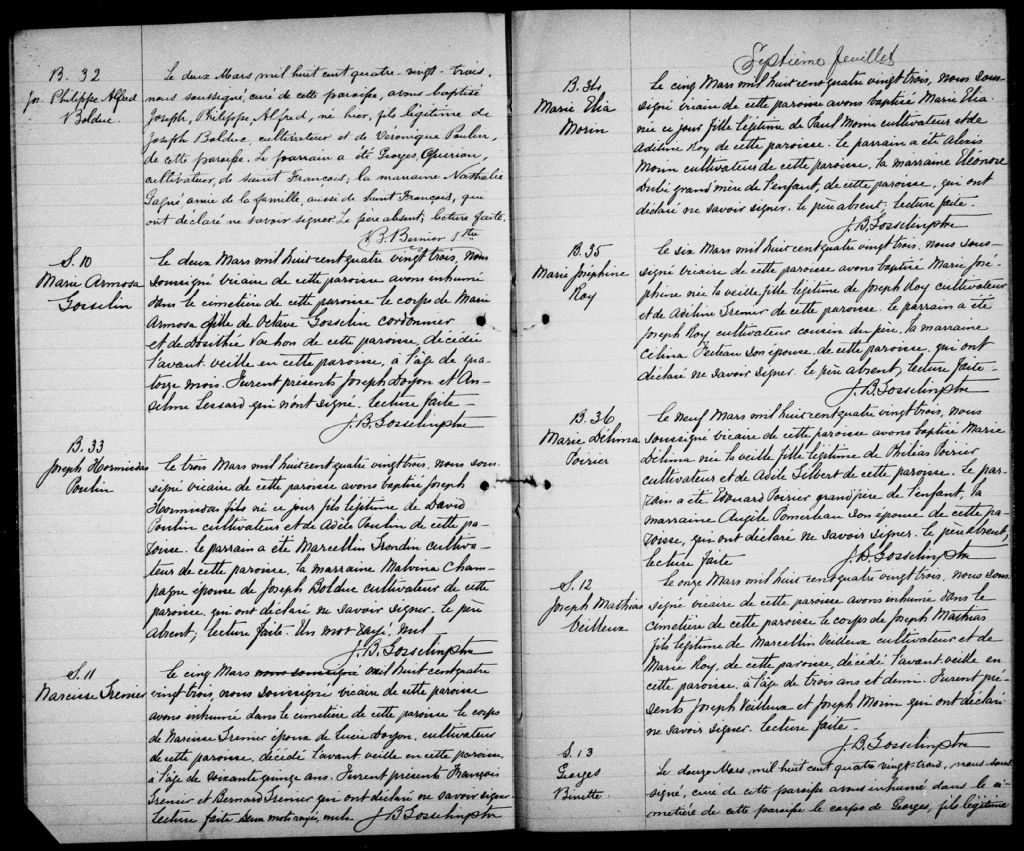 B. 32
Jos. Philippe Alfred
Bolduc
Le deux Mars mil huit cent quatre-vingt-trois,
nous soussigné, curé de cette paroisse, avons baptisé
Joseph, Philippe, Alfred, né hier, fils légitime de
Joseph Bolduc, cultivateur et de Véronique Poulin,
de cette paroisse. Le parrain a été Georges,
cultivateur, de Saint François; la marraine Nathalie
Gagné amie de la famille, aussi de Saint François, qui
ont déclaré ne savoir signer. Le père absent, lecture faite.
Bernier Ptre
S. 10
Marie Armosa
Gosselin
Le deux Mars mil huit cent quatre vingt trois, nous
soussigné vicaire de cette paroisse avons inhumé
dans le cimetière de cette paroisse le corps de Marie
Armosa fille de Octave Gosselin cordonnier
et de Dosithée Vachon de cette paroisse, décédée
l'avant-veille en cette paroisse, à l'âge de qua-
torze mois. Furent présents Joseph Doyon et An-
selme Lessard qui n'ont signé. Lecture faite-
J. B. Gosselin ptre
B. 33
Joseph Hormisdas
Poulin
Le trois Mars mil huit cent quatre vingt trois, nous sous-
signé vicaire de cette paroisse avons baptisé Joseph
Hormisdas fils né ce jour fils légitime de David
Poulin cultivateur et de Adèle Poulin de cette pa-
roisse. Le parrain a été Marcellin Grondin cultiva-
teur de cette paroisse, la marraine Malvina Cham-
pagne épouse de Joseph Bolduc cultivateur de cette
paroisse, qui ont déclaré ne savoir signer. Le père
absent, lecture faite. Un mot rayé, nul
J. B. Gosselin ptre
S. 11
Narcisse Grenier
Le cinq Mars nous soussigné mil huit cent quatre
vingt trois, nous soussigné vicaire de cette paroisse
avons inhumé dans le cimetière de cette paroisse le corps
de Narcisse Grenier époux de Lucie Doyon, cultivateur
de cette paroisse, décédé l'avant veille en cette paroisse
à l'âge de soixante quinze ans. Furent présents François
Grenier et Bernard Grenier qui ont déclaré ne savoir signer
Lecture faite deux mots rayés, nuls J. B. Gosselin ptre
Septième feuillet
B. 34
Marie Elia
Morin
Le cinq Mars mil huit cent quatre vingt trois, nous sous-
signé vicaire de cette paroisse avons baptisé Marie Elia
née ce jour fille légitime de Paul Morin cultivateur et de
Adéline Roy de cette paroisse. Le parrain a été Alexis
Morin cultivateur de cette paroisse, la marraine Eléonore
Dubé grand'mère de l'enfant, de cette paroisse, qui ont
déclaré ne savoir signer. Le père absent, lecture faite.
J. B. Gosselin ptre
B. 35
Marie Joséphine
Roy
Le six Mars mil huit cent quatre vingt trois, nous sous-
signé vicaire de cette paroisse avons baptisé Marie José-
phine née la veille fille légitime de Joseph Roy cultivateur
et de Adéline Grenier de cette paroisse. Le parrain a été
Joseph Roy cultivateur cousin du père, la marraine
Célina Fecteau son épouse, de cette paroisse, qui ont
déclaré ne savoir signer. Le père absent, lecture faite-
J. B. Gosselin ptre
B. 36
Marie Délima
Poirier
Le neuf Mars mil huit cent quatre vingt trois, nous
soussigné vicaire de cette paroisse avons baptisé Marie
Délima née la veille fille légitime de Philias Poirier
cultivateur et de Adèle Gilbert de cette paroisse. Le par-
rain a été Edouard Poirier grand'père de l'enfant, la
marraine Angèle Pomerleau son épouse de cette pa-
roisse, qui ont déclaré ne savoir signer. Le père absent,
lecture faite J. B. Gosselin ptre
S. 12
Joseph Mathias
Veilleux
Le onze Mars mil huit cent quatre vingt trois, nous sous-
signé vicaire de cette paroisse avons inhumé dans le
cimetière de cette paroisse le corps de Joseph Mathias
fils légitime de Marcellin Veilleux cultivateur et de
Marie Roy, de cette paroisse, décédé l'avant-veille en
cette paroisse, à l'âge de trois ans et demi. Furent pré-
sents Joseph Veilleux et Joseph Morin qui ont déclaré
ne savoir signer. Lecture faite.
J. B. Gosselin ptre
S. 13
Georges
Binette
Le douze Mars, mil huit cent quatre vingt trois, nous sous-
signé, curé de cette paroisse avons inhumé dans le ci-
metière de cette paroisse le corps de Georges, fils légitime